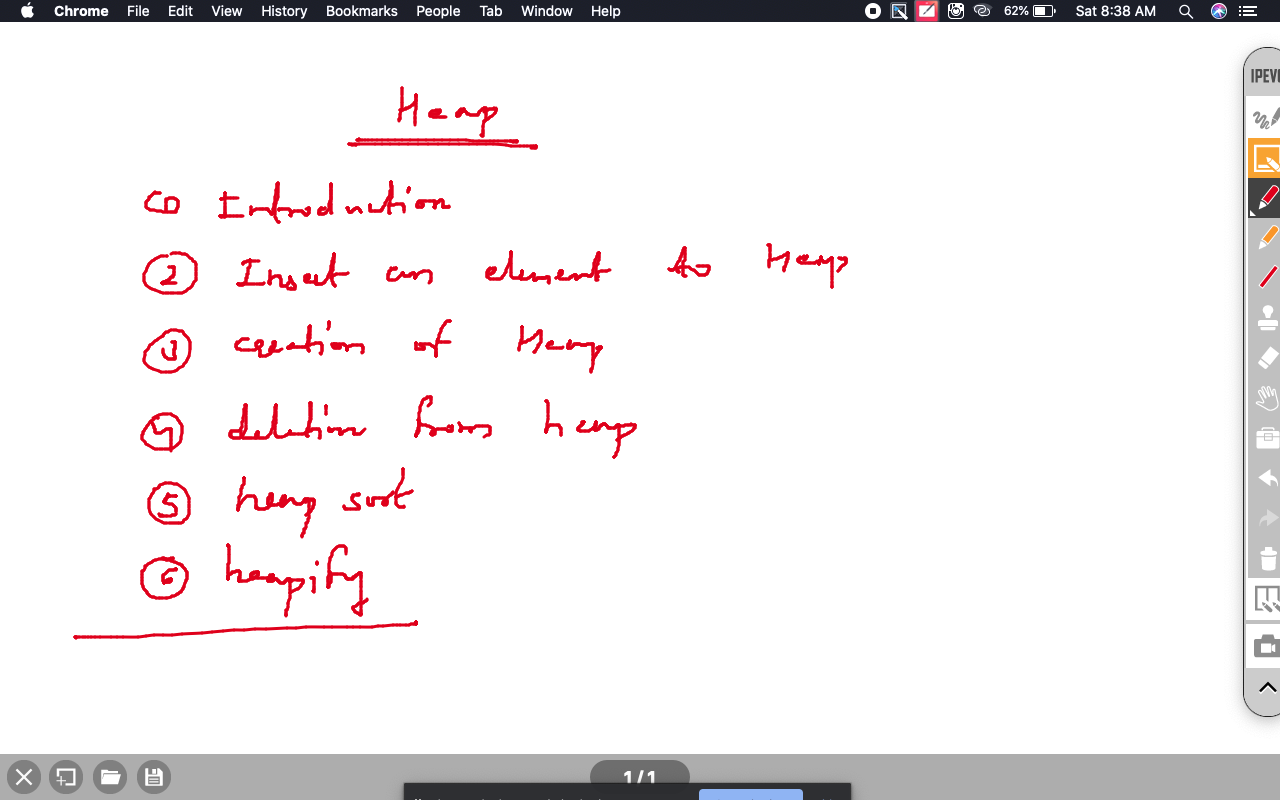 Chrome File Edit View History Bookmarks People Tab Window Help 62% Sat 8:38 AM
IPEV
Heap
Introduction
2 Insert an element to Heap
3 creation of Heap
4 deletion from heap
5 heap sort
6 heapify
1/1